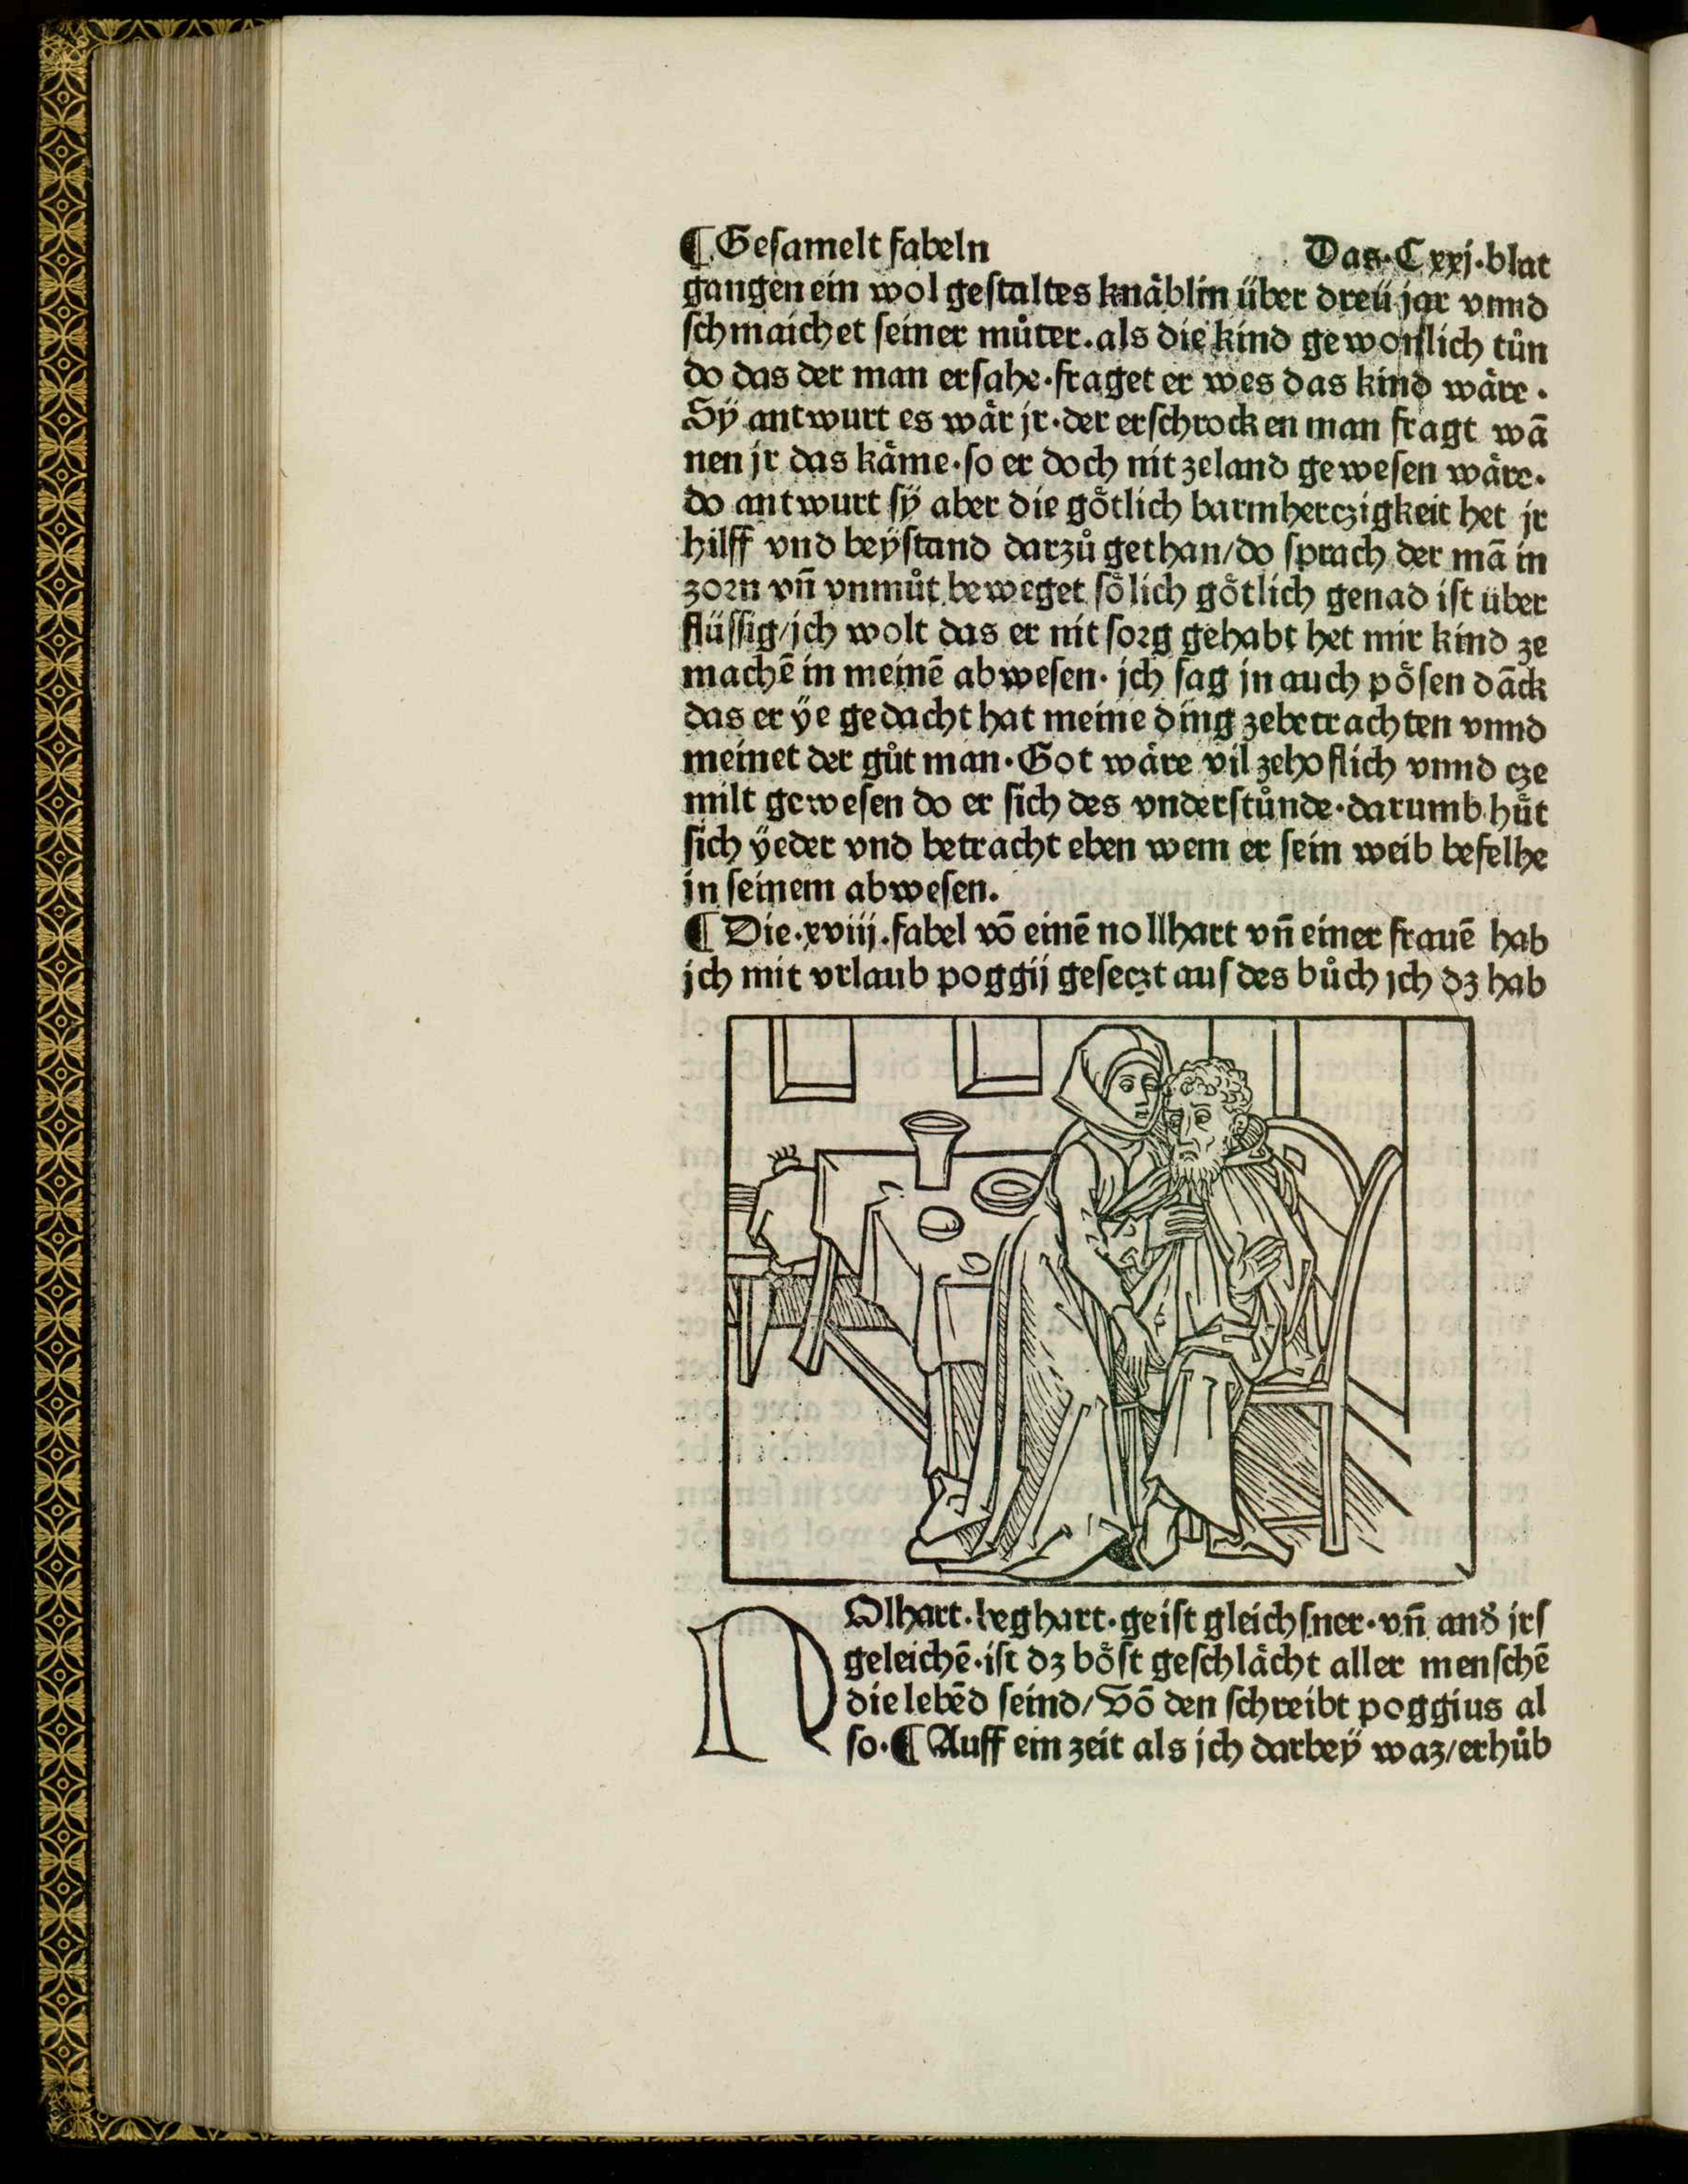 ¶ Gesamelt fabeln Das·Cxxj·blat
gangen ein wol gestaltes knäblin über dreü jar vnnd
schmaichet seiner můter. als die kind gewonlich tůn
do das der man ersahe·fraget er wes das kind wäre·
Sÿ antwurt es wär jr·der erschrocken man fragt wā
nen jr das käme·so er doch nit zeland gewesen wäre·
do antwurt sÿ aber die götlich barmherczigkeit het jr
hilff vnd beÿstand darzů gethan/do sprach der mā in
zorn vñ vnmůt beweget sölich götlich genad ist über
flüssig/jch wolt das er nit sorg gehabt het mir kind ze
machē in meinē abwesen· jch sag in auch pösen dāck
das er ÿe gedacht hat meine ding zebetrachten vnnd
meinet der gůt man·Got wäre vil zehoflich vnnd cze
milt gewesen do er sich des vnderstůnde·darumb hüt
sich ÿeder vnd betracht eben wem er sein weib befelhe
in seinem abwesen.
¶ Die·xviij·fabel vō einē nollhart vñ einer frauē hab
jch mit vrlaub poggij geseczt aus des bůch jch dz hab
NOlhart·beghart·geist gleichsner·vñ and̄ jrs
geleichē·ist dz böst geschlächt aller menschē
die lebēd seind/Vō den schreibt poggius al
so·¶ Auff ein zeit als jch darbeÿ waz/erhůb